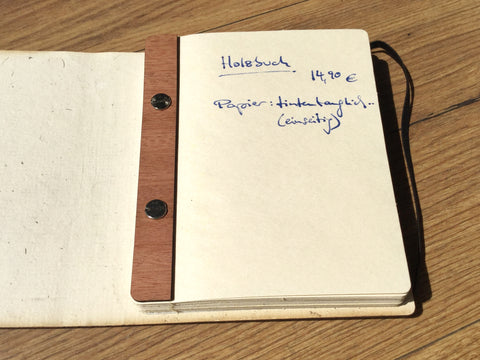 Holzbuch
14,90 €
Papier: tintentauglich..
(einseitig)